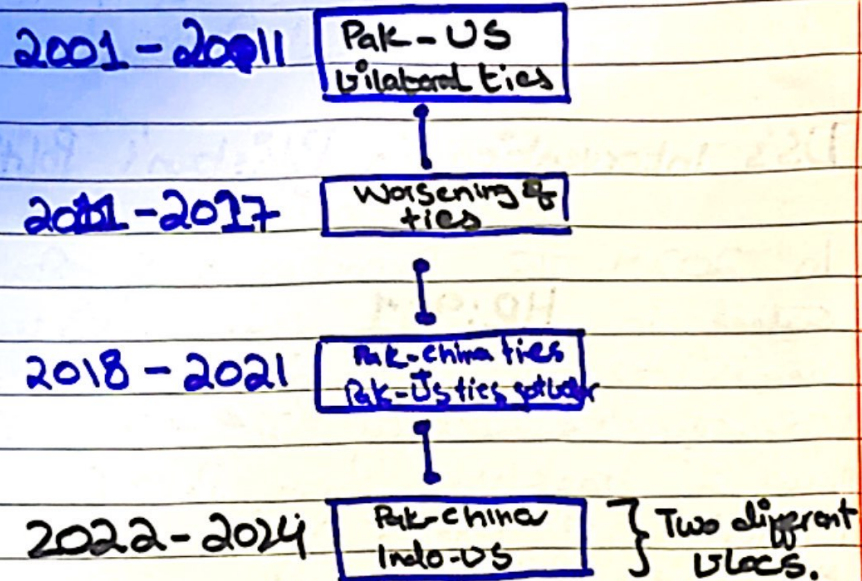 2001 - 2011
Pak - US
bilateral ties
2011 - 2017
Worsening of
ties
2018 - 2021
Pak-China ties
+
Pak-US ties got
2022 - 2024
Pak-China
Indo-US
} Two different
blocs.